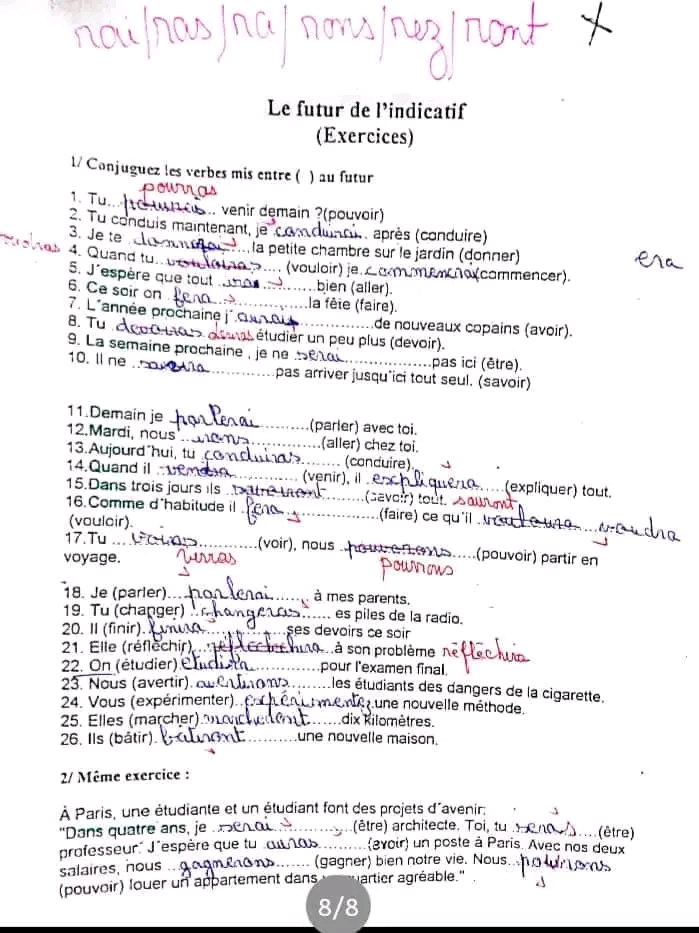 rai/ras/ra/rons/rez/ront
Le futur de l'indicatif
(Exercices)
1/ Conjuguez les verbes mis entre ( ) au futur
pourras
1. Tu... .. venir demain ?(pouvoir)
2. Tu conduis maintenant, je conduirai. après (conduire)
3. Je te ....la petite chambre sur le jardin (donner)
4. Quand tu.. .... (vouloir) je. (commencer).
era
5. J'espère que tout .. ........bien (aller).
6. Ce soir on fera ............la fête (faire).
7. L'année prochaine j' ..............de nouveaux copains (avoir).
8. Tu devras étudier un peu plus (devoir).
9. La semaine prochaine , je ne .serai................pas ici (être).
10. Il ne .. ............pas arriver jusqu'ici tout seul. (savoir)
11.Demain je parlerai .........(parler) avec toi.
12.Mardi, nous ..irons............(aller) chez toi.
13.Aujourd'hui, tu conduiras......... (conduire).
14.Quand il ............ (venir), il expliquera....(expliquer) tout.
15.Dans trois jours ils ........(savoir) tout. sauront
16.Comme d'habitude il fera ..............(faire) ce qu'il ... voudra
(vouloir).
17.Tu ... ..........(voir), nous .....(pouvoir) partir en
voyage. verras pourrons
18. Je (parler)...parlerai....... à mes parents.
19. Tu (changer) .changeras...... es piles de la radio.
20. Il (finir).finira..............ses devoirs ce soir
21. Elle (réfléchir)... ...à son problème réfléchira
22. On (étudier) ............pour l'examen final.
23. Nous (avertir).avertirons.........les étudiants des dangers de la cigarette.
24. Vous (expérimenter).. .une nouvelle méthode.
25. Elles (marcher). ......dix kilomètres.
26. Ils (bâtir).bâtiront...........une nouvelle maison.
2/ Même exercice :
À Paris, une étudiante et un étudiant font des projets d'avenir.
"Dans quatre ans, je .serai .........(être) architecte. Toi, tu .seras....(être)
professeur. J'espère que tu auras..........(avoir) un poste à Paris. Avec nos deux
salaires, nous ..gagnerons....... (gagner) bien notre vie. Nous..
(pouvoir) louer un appartement dans quartier agréable."
8/8